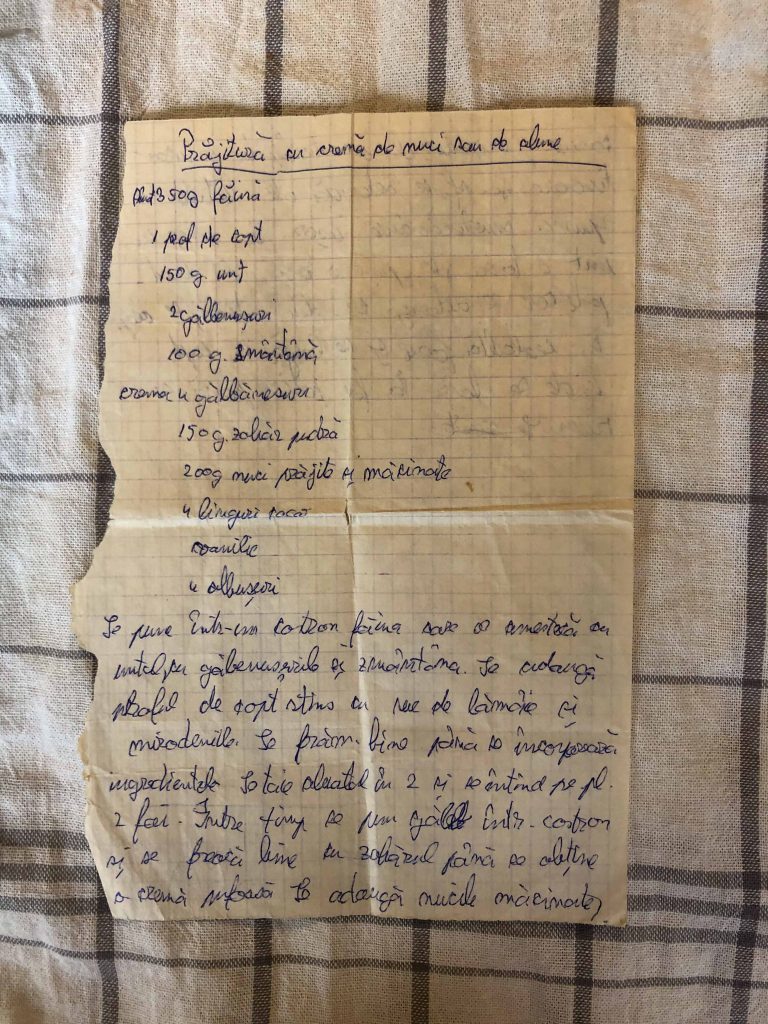 Prăjitură cu cremă de nuci sau de alune
Aluat 350g făină
1 praf de copt
150 g. unt
2 gălbenușuri
100 g. smântână
crema 4 gălbănușuri
150 g. zahăr pudră
200g nuci prăjite și măcinate
4 linguri cacao
vanilie
4 albușuri
Se pune într-un castron făina care se amestecă cu
untul, cu gălbenușurile și zmântâna. Se adaugă
praful de copt stins cu suc de lămâie și
mirodeniile. Se frăm. bine până se încorporează
ingredientele Se taie aluatul în 2 și se întind pe pl.
2 foi. Între timp se pun gălb într-castron
și se freacă bine cu zahărul până se obține
o cremă pufoasă Se adaugă nucile măcinate,